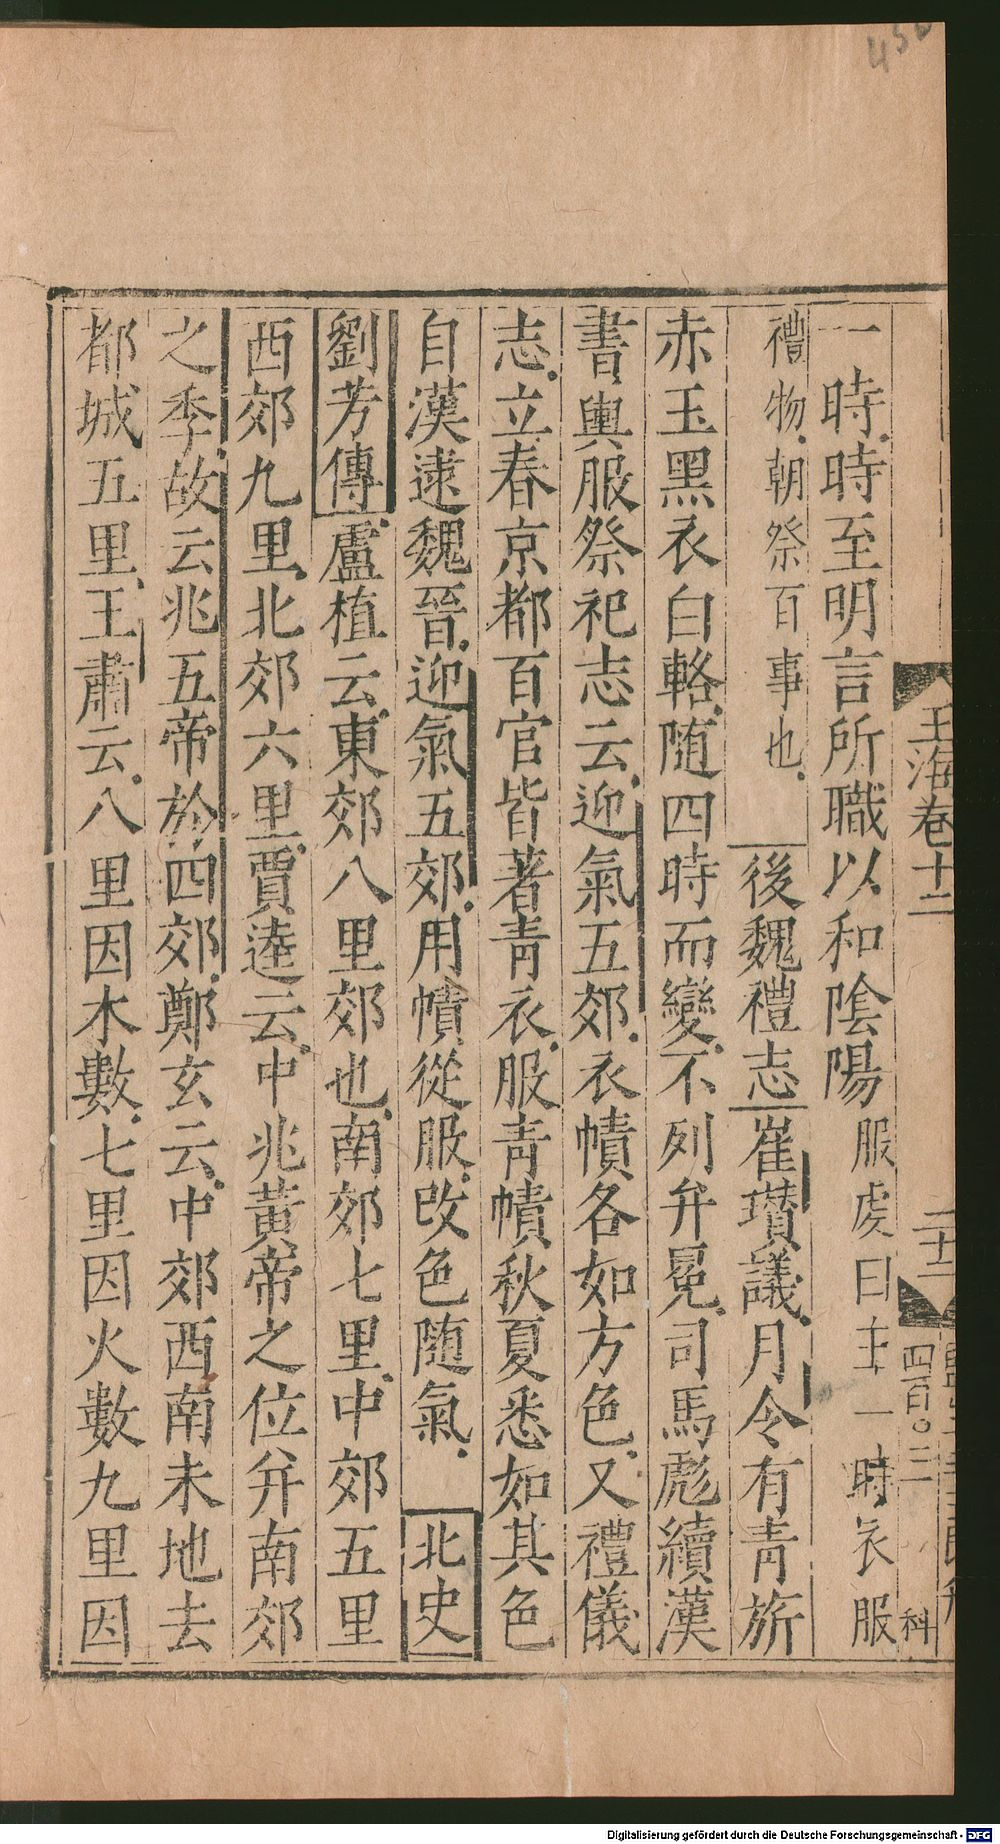 玉海卷十二
二十二
四百〇三
科
一時時至明言所職以和陰陽服虔曰主一時衣服
禮物朝祭百事也後魏禮志崔瓚議月令有青旂
赤玉黑衣白輅随四時而變不列弁冕司馬彪續漢
書輿服祭祀志云迎氣五郊衣幘各如方色又禮儀
志立春京都百官皆著青衣服青幘秋夏悉如其色
自漢逮魏晉迎氣五郊用幘從服改色随氣北史
劉芳傳盧植云東郊八里郊也南郊七里中郊五里
西郊九里北郊六里賈逵云中兆黃帝之位并南郊
之季故云兆五帝於四郊鄭玄云中郊西南未地去
都城五里王肅云八里因木數七里因火數九里因
Digitalisierung gefördert durch die Deutsche Forschungsgemeinschaft - DFG